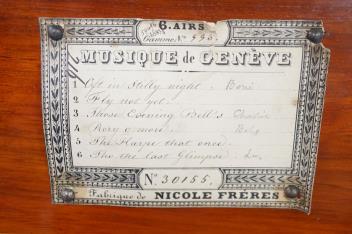 6. AIRS
Gamme N.º
MUSIQUE de GENÈVE
1 Oft in Stilly night.
2 Fly not yet.
3 Those Evening Bell's
4 Rory o more.
5 The Harpe that once.
6 Tho the last Glimpse.
Nº 30155.
Fabrique de NICOLE FRÈRES